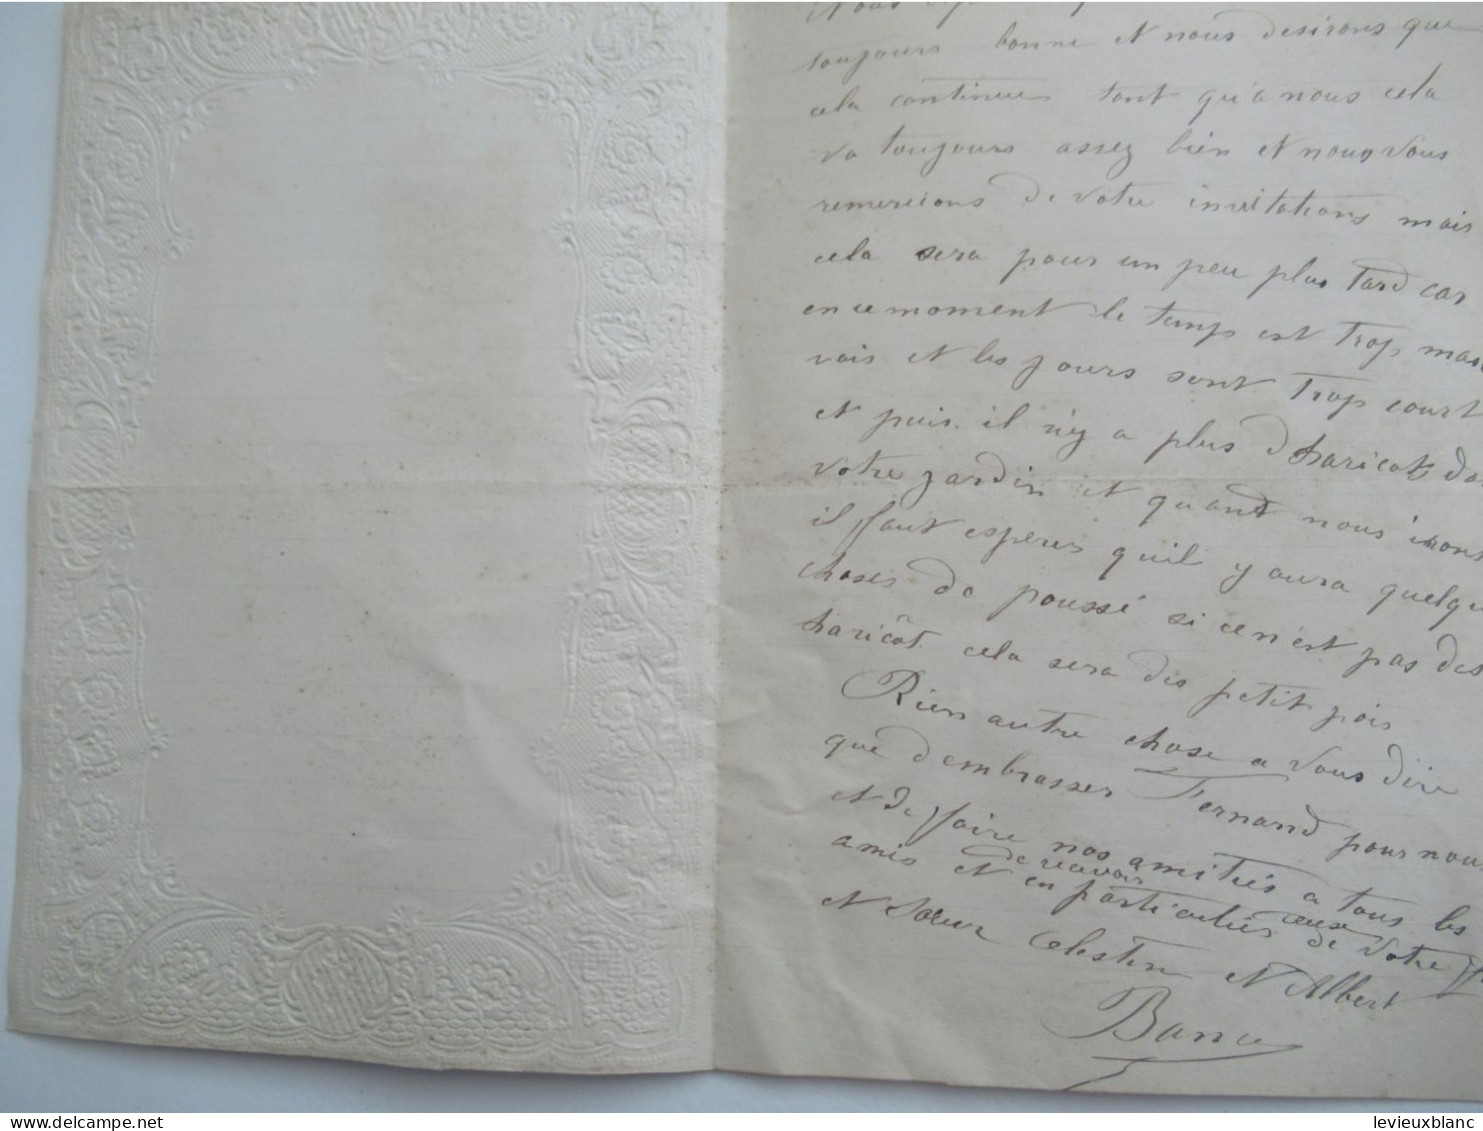 Nous
toujours bonne et nous desirons que
cela continue tant qu'a nous cela
va toujours assez bien et nous vous
remercions de votre invitations mais
cela sera pour un peu plus tard car
en ce moment le temps est trop mau
vais et les jours sont trop court
et puis il n'y a plus d'haricots da
votre jardin et quand nous iront
il faut esperer quil y aura quelqu
choses de poussé si ce n'est pas des
haricôt cela sera des petit pois
Rien autre chose a vous dire
que d'embrasser Fernand pour nou
et de faire nos amitiés a tous les
de recevoir
amis et en particuliés ceux de votre
et soeur Celestine et Albert
Bance
delcampe.net
levieuxblanc